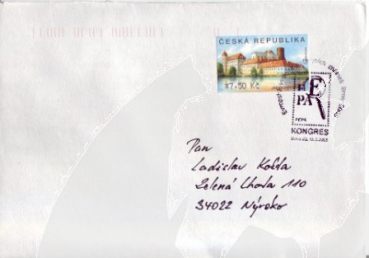 ČESKÁ REPUBLIKA
*7,50 Kč
KONGRES
Pan
Ladislav Košta
Zelená Lhota 110
34022 Nýrsko